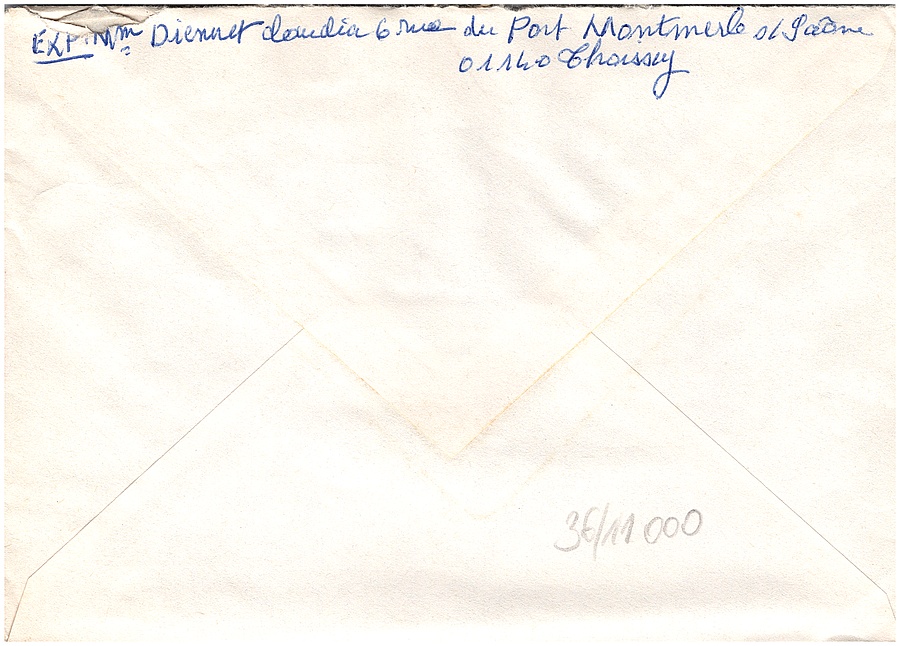 EXP: Mme Diennet Claudia 6 rue du Port Montmerle s/ Saône
01140 Thoissey
36/11 000